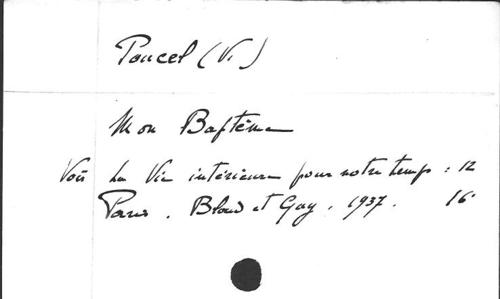 Poucel (V.)
Mon Baptême
Voir La Vie intérieure pour notre temps : 12
Paris . Bloud et Gay . 1937 . 16°